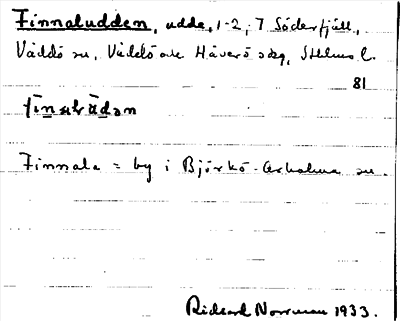 Finnaludden, udde, 1-2, 7 Söderfjäll,
Väddö sn, Väddö och Häverö skg, Sthlms l.
81
Finnala = by i Björkö-Arholma sn.
Richard Norrman 1933.